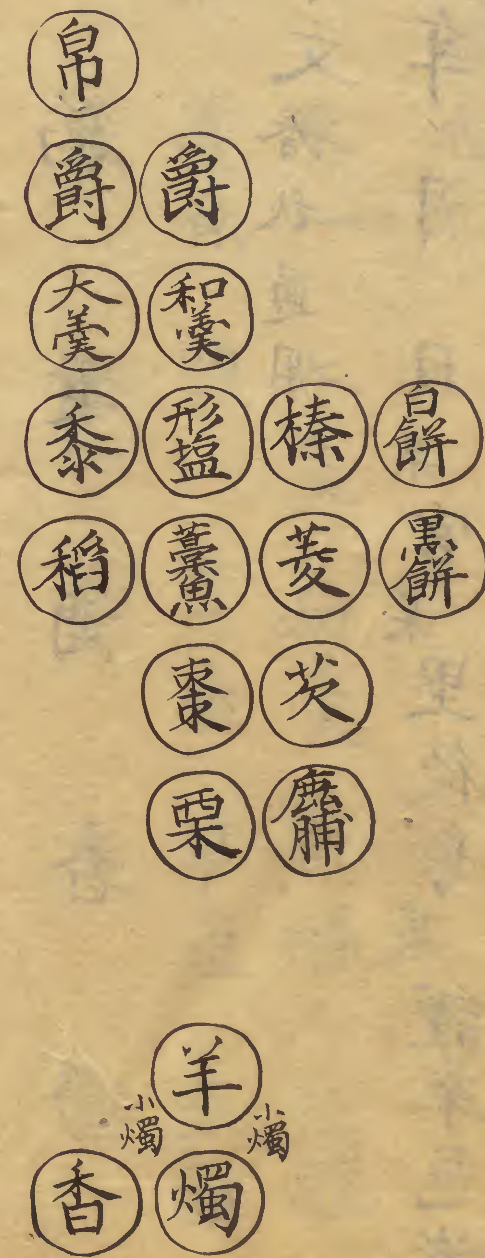 帛
爵 爵
大羹 和羹
黍 形塩 榛 白餅
稻 藁魚 菱 黒餅
棗 芡
栗 鹿脯
羊
小燭 小燭
香 燭